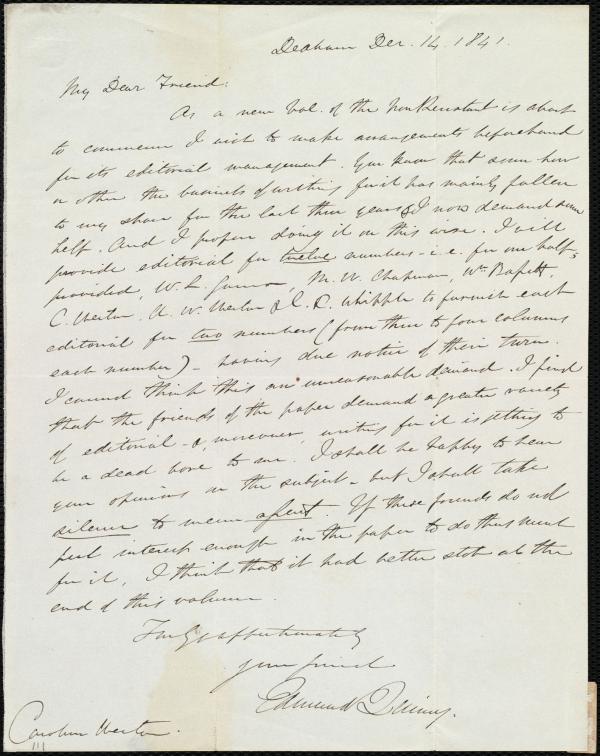 Dedham Dec. 14. 1841.
My Dear Friend:
As a new Vol. of the Non Resistant is about
to commence I wish to make arrangements beforehand
for its editorial management. You know that some how
or other the business of writing for it has mainly fallen
to my share for the last three years & I now demand some
help. And I propose doing it on this wise. I will
provide editorial for twelve numbers - i.e. for one half -
provided, W. L. Garrison, M. W. Chapman, Wm. Bassett,
C. Weston, A. W. Weston & C. K. Whipple to furnish each
editorial for two numbers (from three to four columns
each number) - having due notice of their turn.
I cannot think this an unreasonable demand. I find
that the friends of the paper demand a greater variety
of editorial - &, moreover, writing for it is getting to
be a dead bore to me. I shall be happy to hear
your opinions on the subject - but I shall take
silence to mean assent. If these friends do not
feel interest enough in the paper to do thus much
for it, I think that it had better stop at the
end of this volume.
affectionately
your friend
Edmund Quincy.
Caroline Weston.